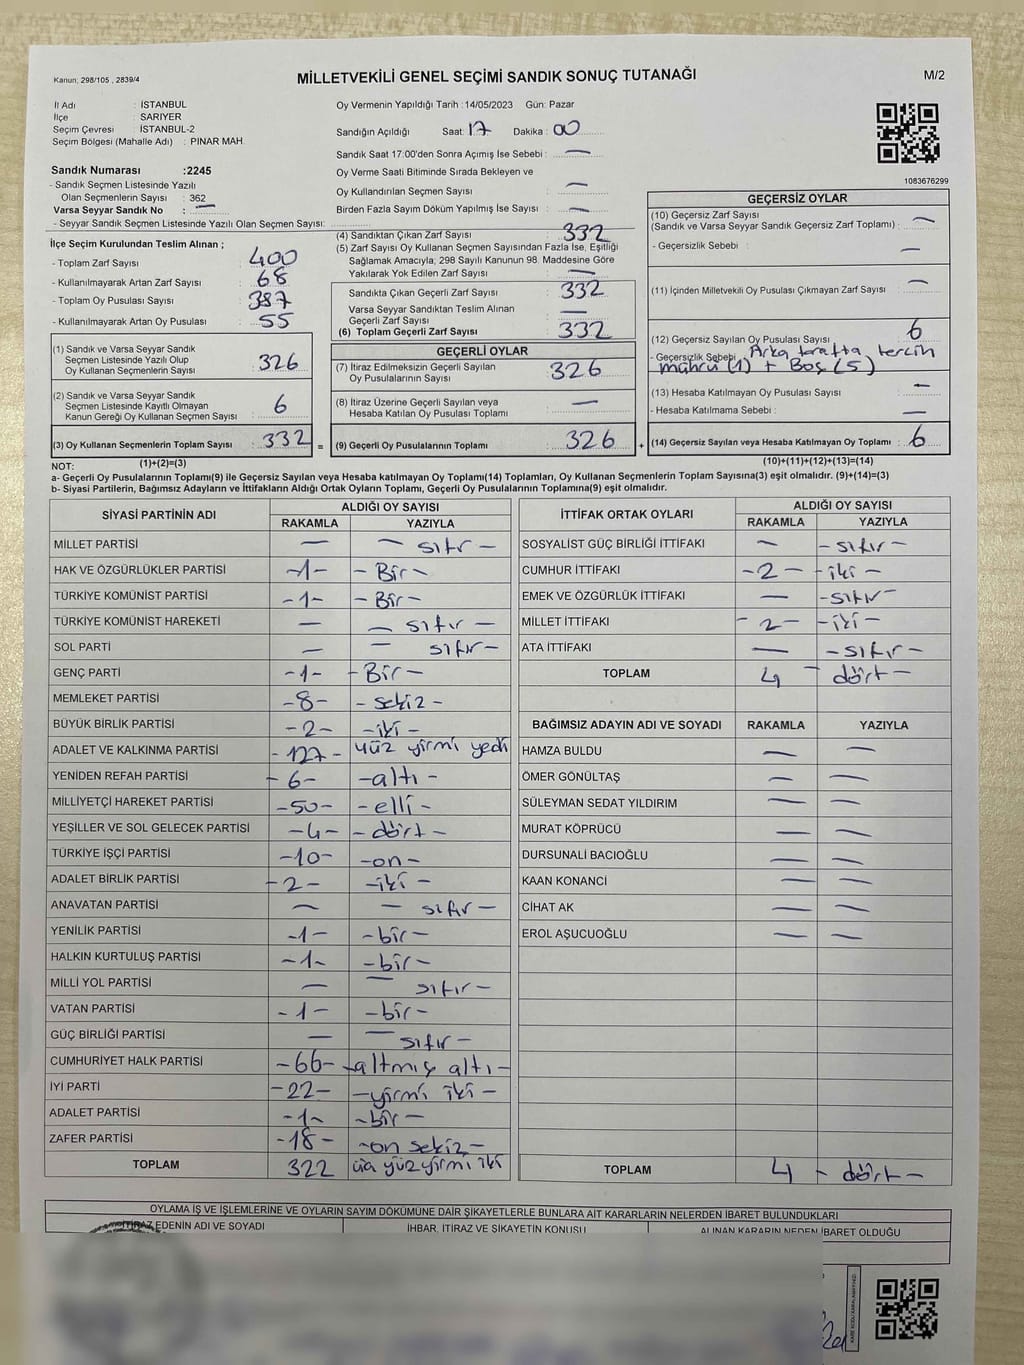 Kanun: 298/105 , 2839/4
MİLLETVEKİLİ GENEL SEÇİMİ SANDIK SONUÇ TUTANAĞI
M/2
İl Adı : İSTANBUL
İlçe : SARIYER
Seçim Çevresi : İSTANBUL-2
Seçim Bölgesi (Mahalle Adı) : PINAR MAH.
Sandık Numarası :2245
- Sandık Seçmen Listesinde Yazılı
Olan Seçmenlerin Sayısı : 362
Varsa Seyyar Sandık No : —
- Seyyar Sandık Seçmen Listesinde Yazılı Olan Seçmen Sayısı:
Oy Vermenin Yapıldığı Tarih :14/05/2023 Gün: Pazar
Sandığın Açıldığı Saat: 17 Dakika : 00
Sandık Saat 17:00'den Sonra Açımış İse Sebebi : —
Oy Verme Saati Bitiminde Sırada Bekleyen ve
Oy Kullandırılan Seçmen Sayısı —
Birden Fazla Sayım Döküm Yapılmış İse Sayısı : —
1083676299
İlçe Seçim Kurulundan Teslim Alınan ;
- Toplam Zarf Sayısı : 400
- Kullanılmayarak Artan Zarf Sayısı : 68
- Toplam Oy Pusulası Sayısı : 387
- Kullanılmayarak Artan Oy Pusulası : 55
(1) Sandık ve Varsa Seyyar Sandık
Seçmen Listesinde Yazılı Olup
Oy Kullanan Seçmenlerin Sayısı : 326
(2) Sandık ve Varsa Seyyar Sandık
Seçmen Listesinde Kayıtlı Olmayan
Kanun Gereği Oy Kullanan Seçmen Sayısı : 6
(3) Oy Kullanan Seçmenlerin Toplam Sayısı : 332 =
(1)+(2)=(3)
(4) Sandıktan Çıkan Zarf Sayısı : 332
(5) Zarf Sayısı Oy Kullanan Seçmen Sayısından Fazla İse, Eşitliği
Sağlamak Amacıyla, 298 Sayılı Kanunun 98. Maddesine Göre
Yakılarak Yok Edilen Zarf Sayısı : —
Sandıkta Çıkan Geçerli Zarf Sayısı : 332
Varsa Seyyar Sandıktan Teslim Alınan
Geçerli Zarf Sayısı : —
(6) Toplam Geçerli Zarf Sayısı : 332
GEÇERLİ OYLAR
(7) İtiraz Edilmeksizin Geçerli Sayılan
Oy Pusulalarının Sayısı : 326
(8) İtiraz Üzerine Geçerli Sayılan veya
Hesaba Katılan Oy Pusulası Toplamı : —
(9) Geçerli Oy Pusulalarının Toplamı : 326 +
GEÇERSİZ OYLAR
(10) Geçersiz Zarf Sayısı
(Sandık ve Varsa Seyyar Sandık Geçersiz Zarf Toplamı) : —
- Geçersizlik Sebebi : —
(11) İçinden Milletvekili Oy Pusulası Çıkmayan Zarf Sayısı : —
(12) Geçersiz Sayılan Oy Pusulası Sayısı : 6
- Geçersizlik Sebebi : Arka tarafta tercih
mührü (1) + Boş (5)
(13) Hesaba Katılmayan Oy Pusulası Sayısı : —
- Hesaba Katılmama Sebebi : —
(14) Geçersiz Sayılan veya Hesaba Katılmayan Oy Toplamı : 6
(10)+(11)+(12)+(13)=(14)
NOT:
a- Geçerli Oy Pusulalarının Toplamı(9) ile Geçersiz Sayılan veya Hesaba katılmayan Oy Toplamı(14) Toplamları, Oy Kullanan Seçmenlerin Toplam Sayısına(3) eşit olmalıdır. (9)+(14)=(3)
b- Siyasi Partilerin, Bağımsız Adayların ve İttifakların Aldığı Ortak Oyların Toplamı, Geçerli Oy Pusulalarının Toplamına(9) eşit olmalıdır.
SİYASİ PARTİNİN ADI ALDIĞI OY SAYISI
RAKAMLA YAZIYLA
MİLLET PARTİSİ — — sıfır —
HAK VE ÖZGÜRLÜKLER PARTİSİ -1- - Bir -
TÜRKİYE KOMÜNİST PARTİSİ -1- - Bir -
TÜRKİYE KOMÜNİST HAREKETİ — — sıfır —
SOL PARTİ — — sıfır —
GENÇ PARTİ -1- - Bir -
MEMLEKET PARTİSİ -8- - sekiz -
BÜYÜK BİRLİK PARTİSİ -2- - iki -
ADALET VE KALKINMA PARTİSİ -127- yüz yirmi yedi
YENİDEN REFAH PARTİSİ -6- -altı -
MİLLİYETÇİ HAREKET PARTİSİ -50- - elli -
YEŞİLLER VE SOL GELECEK PARTİSİ -4- - dört -
TÜRKİYE İŞÇİ PARTİSİ -10- -on-
ADALET BİRLİK PARTİSİ -2- -iki -
ANAVATAN PARTİSİ — — sıfır —
YENİLİK PARTİSİ -1- -bir-
HALKIN KURTULUŞ PARTİSİ -1- -bir-
MİLLİ YOL PARTİSİ — — sıfır -
VATAN PARTİSİ -1- -bir-
GÜÇ BİRLİĞİ PARTİSİ — — sıfır -
CUMHURİYET HALK PARTİSİ -66- -altmış altı-
İYİ PARTİ -22- -yirmi iki -
ADALET PARTİSİ -1- -bir-
ZAFER PARTİSİ -18- -on sekiz-
TOPLAM 322 üç yüz yirmi iki
İTTİFAK ORTAK OYLARI ALDIĞI OY SAYISI
RAKAMLA YAZIYLA
SOSYALİST GÜÇ BİRLİĞİ İTTİFAKI — -sıfır-
CUMHUR İTTİFAKI -2- -iki-
EMEK VE ÖZGÜRLÜK İTTİFAKI — -sıfır-
MİLLET İTTİFAKI -2- -iki-
ATA İTTİFAKI — -sıfır-
TOPLAM 4 - dört-
BAĞIMSIZ ADAYIN ADI VE SOYADI RAKAMLA YAZIYLA
HAMZA BULDU — —
ÖMER GÖNÜLTAŞ — —
SÜLEYMAN SEDAT YILDIRIM — —
MURAT KÖPRÜCÜ — —
DURSUNALİ BACIOĞLU — —
KAAN KONANCİ — —
CİHAT AK — —
EROL AŞUCUOĞLU — —
TOPLAM 4 - dört-
OYLAMA İŞ VE İŞLEMLERİNE VE OYLARIN SAYIM DÖKÜMÜNE DAİR ŞİKAYETLERLE BUNLARA AİT KARARLARIN NELERDEN İBARET BULUNDUKLARI
İTİRAZ EDENİN ADI VE SOYADI İHBAR, İTİRAZ VE ŞİKAYETİN KONUSU ALINAN KARARIN NEDEN İBARET OLDUĞU